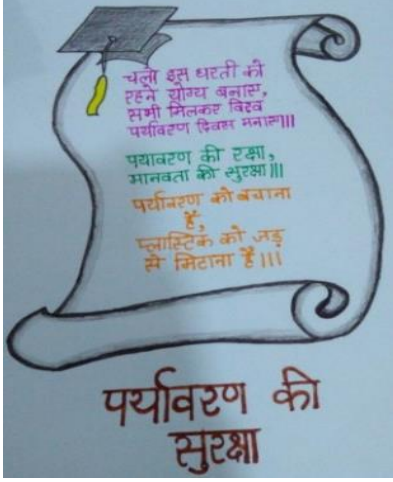 चलो इस धरती को
रहने योग्य बनाए,
सभी मिलकर विश्व
पर्यावरण दिवस मनाए।।।
पयावरण की रक्षा,
मानवता की सुरक्षा।।।
पर्यावरण को बचाना
है,
प्लास्टिक को जड़
से मिटाना है।।।
पर्यावरण की
सुरक्षा